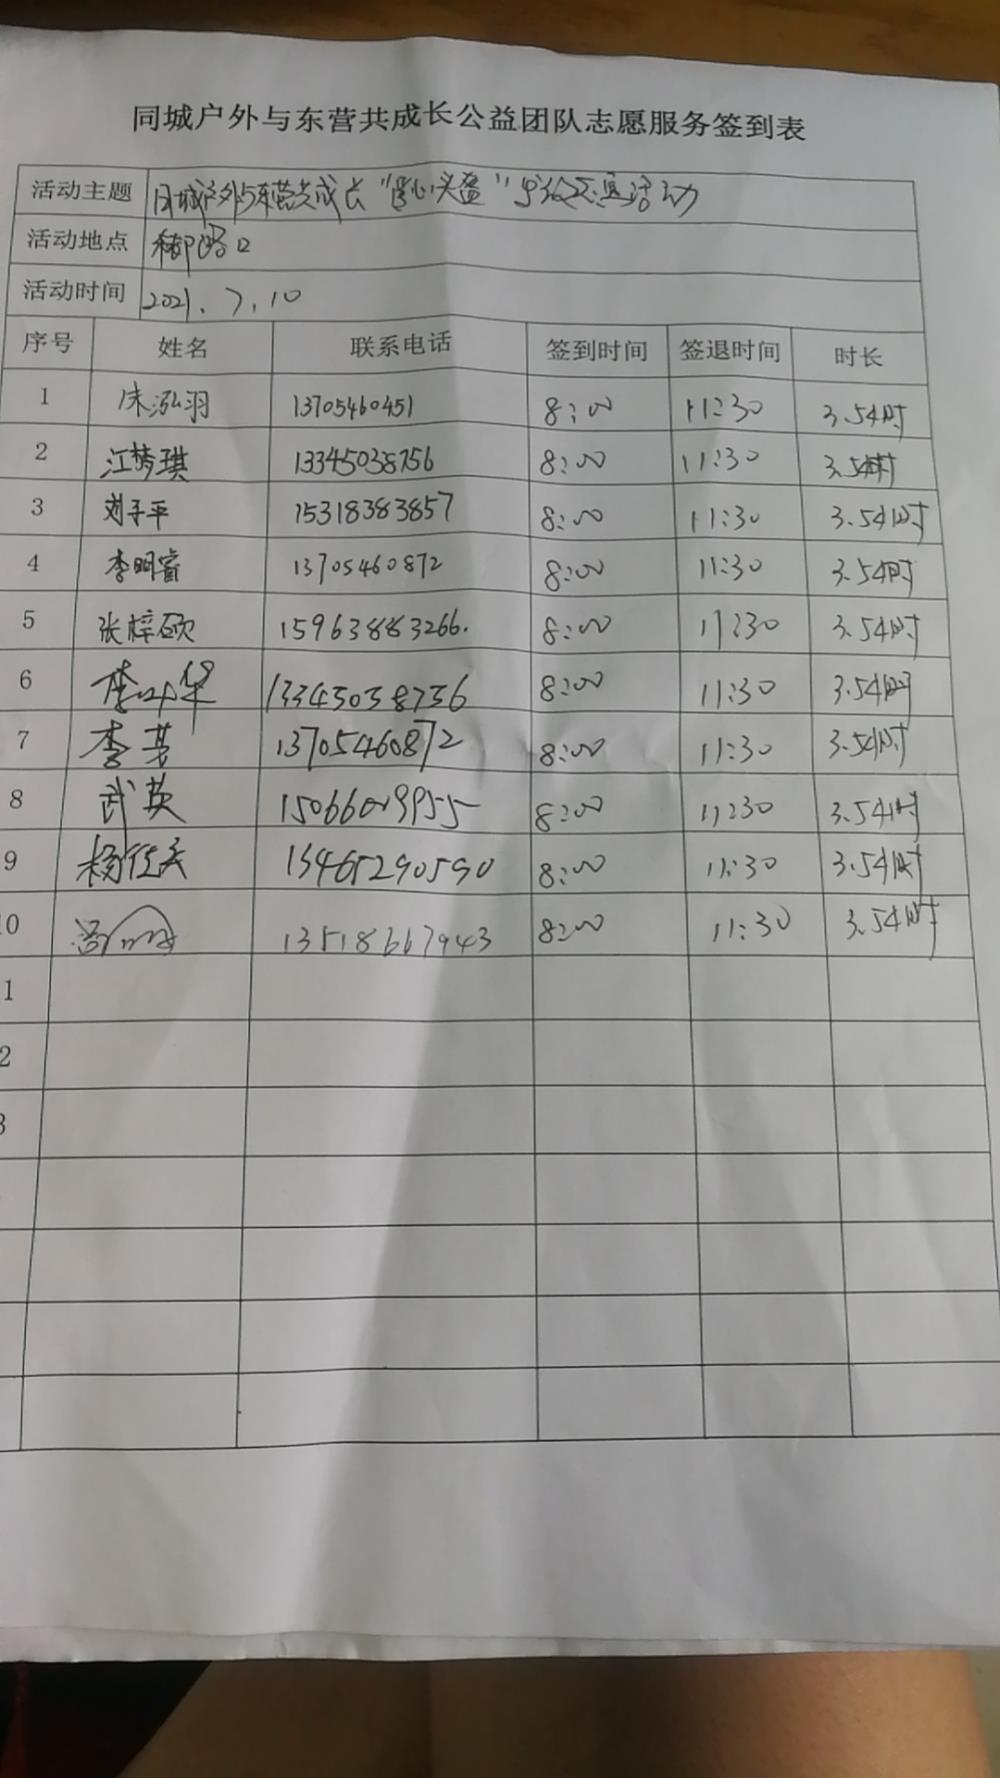 同城户外与东营共成长公益团队志愿服务签到表
活动主题 同城户外与东营共成长"爱心头盔"发放志愿活动
活动地点 路口
活动时间 2021.7.10
序号 姓名 联系电话 签到时间 签退时间 时长
1 泓羽 13705460451 8:00 11:30 3.5小时
2 江梦琪 13345038756 8:00 11:30 3.5小时
3 刘子平 15318383857 8:00 11:30 3.5小时
4 李明睿 13705460872 8:00 11:30 3.5小时
5 张梓硕 159638883266. 8:00 11:30 3.5小时
6 李叶华 13345038756 8:00 11:30 3.5小时
7 李芳 13705460872 8:00 11:30 3.5小时
8 武英 15066019955 8:00 11:30 3.5小时
9 杨 13465290590 8:00 11:30 3.5小时
10 13518667943 8:00 11:30 3.5小时
1
2
3